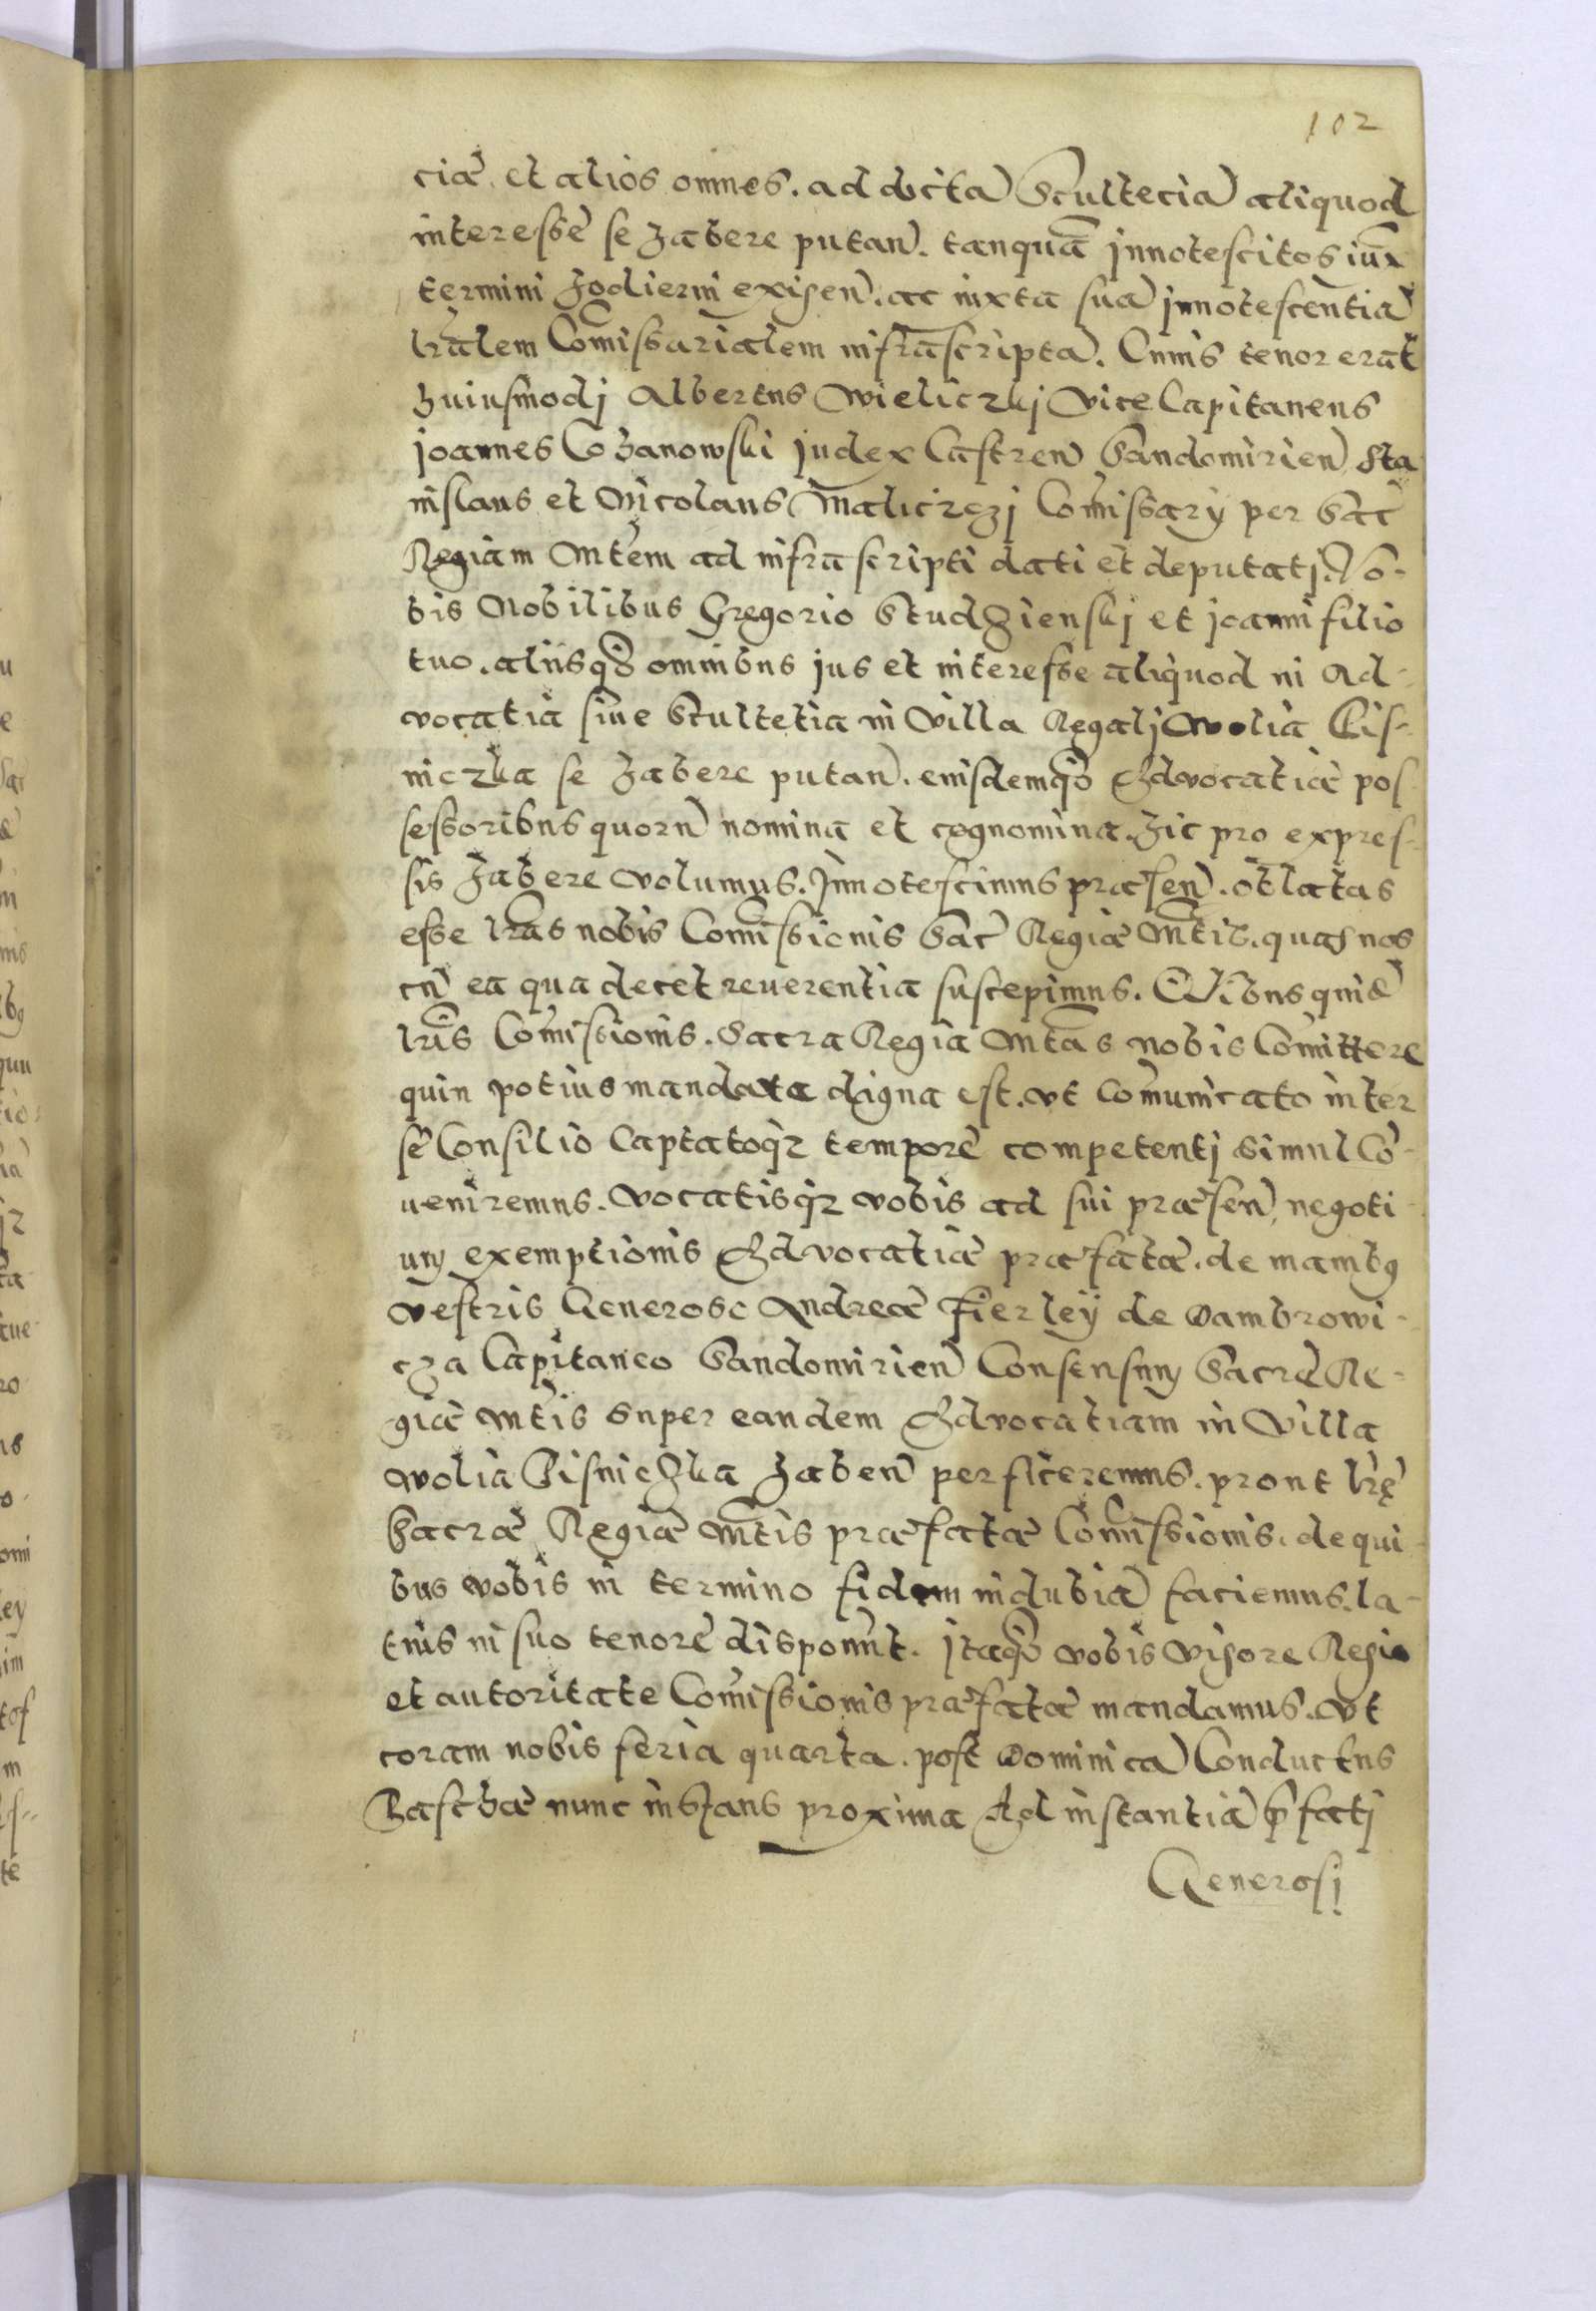 102
ciæ. et alios omnes. ad dictã Sculteciã aliquod
interesse se habere putan̄. tanquã innotescitos iux̃
termini hodierni exigen̄. ac iuxta suã innotescentiã
lr̃alem Com̃issarialem infrascriptã. Cuius tenor erat
huiusmodj Albertus Wieliczkj Vice Capitaneus
joannes Cohanowski judex Castren̄ Sandomirien̄ Sta
nislaus et Nicolaus Maliczkj Com̃issarÿ per Sac̃
Regiam Mt̃em ad infra scripti dati et deputatj. Vo-
bis Nobilibus Gregorio Studzienskj et joanni filio
tuo. aliisq̃ omnibus jus et interesse aliquod in Ad-
vocatia siue Scultetia in Villa Regalj Wolia Lis-
niczka se habere putan̄. eiusdemq̃ Advocatiæ pos
sessoribus quorũ nomina et cognomina. hic pro expres-
sis habere volumus. Innotescimus præsen̄. oblatas
esse lr̃as nobis Com̃issionis Sac̃ Regiæ Mt̃is. quas nos
cũ ea qua decet reuerentia suscepimus. Quibus quidẽ
lr̃is Com̃issionis. Sacra Regia Mt̃as nobis Com̃ittere
quin potius mandata digna est. vt com̃unicato inter
se Consilio Captatoq̃ tempore competentj simul Cõ-
ueniremus. vocatisq̃ vobis ad sui præsen̄ negoti-
um exemptionis Advocatiæ præfatæ. de manibus
vestris Generoso Andreæ Fierleÿ de Dambrowi-
cza Capitaneo Sandomirien̄ Consensum Sacræ Re-
giæ Mt̃is super eandem Advocatiam in Villa
Wolia Lisniczka haben̄ perficeremus. prout lr̃ę
Sacræ Regiæ Mt̃is præfatæ Com̃issionis. de qui-
bus vobis in termino fidem indubiã faciemus. la-
tius in suo tenore disponũt. jtaq̃ vobis vigore Regio
et autoritate Com̃issionis præfatæ mandamus. vt
coram nobis feria quarta. post Dominicã Conductus
Paschæ nunc instans proxima Ad instantiã p̃fatj
Generosj